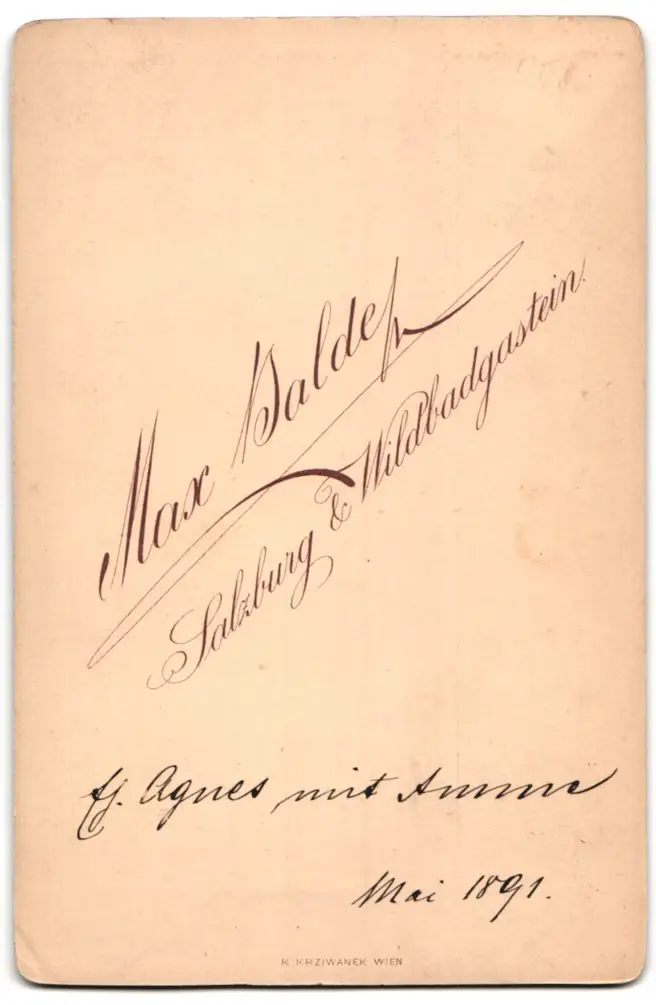 Max Balde
Salzburg & Wildbadgastein.
Agnes mit Amme
Mai 1891.
K. KRZIWANEK WIEN